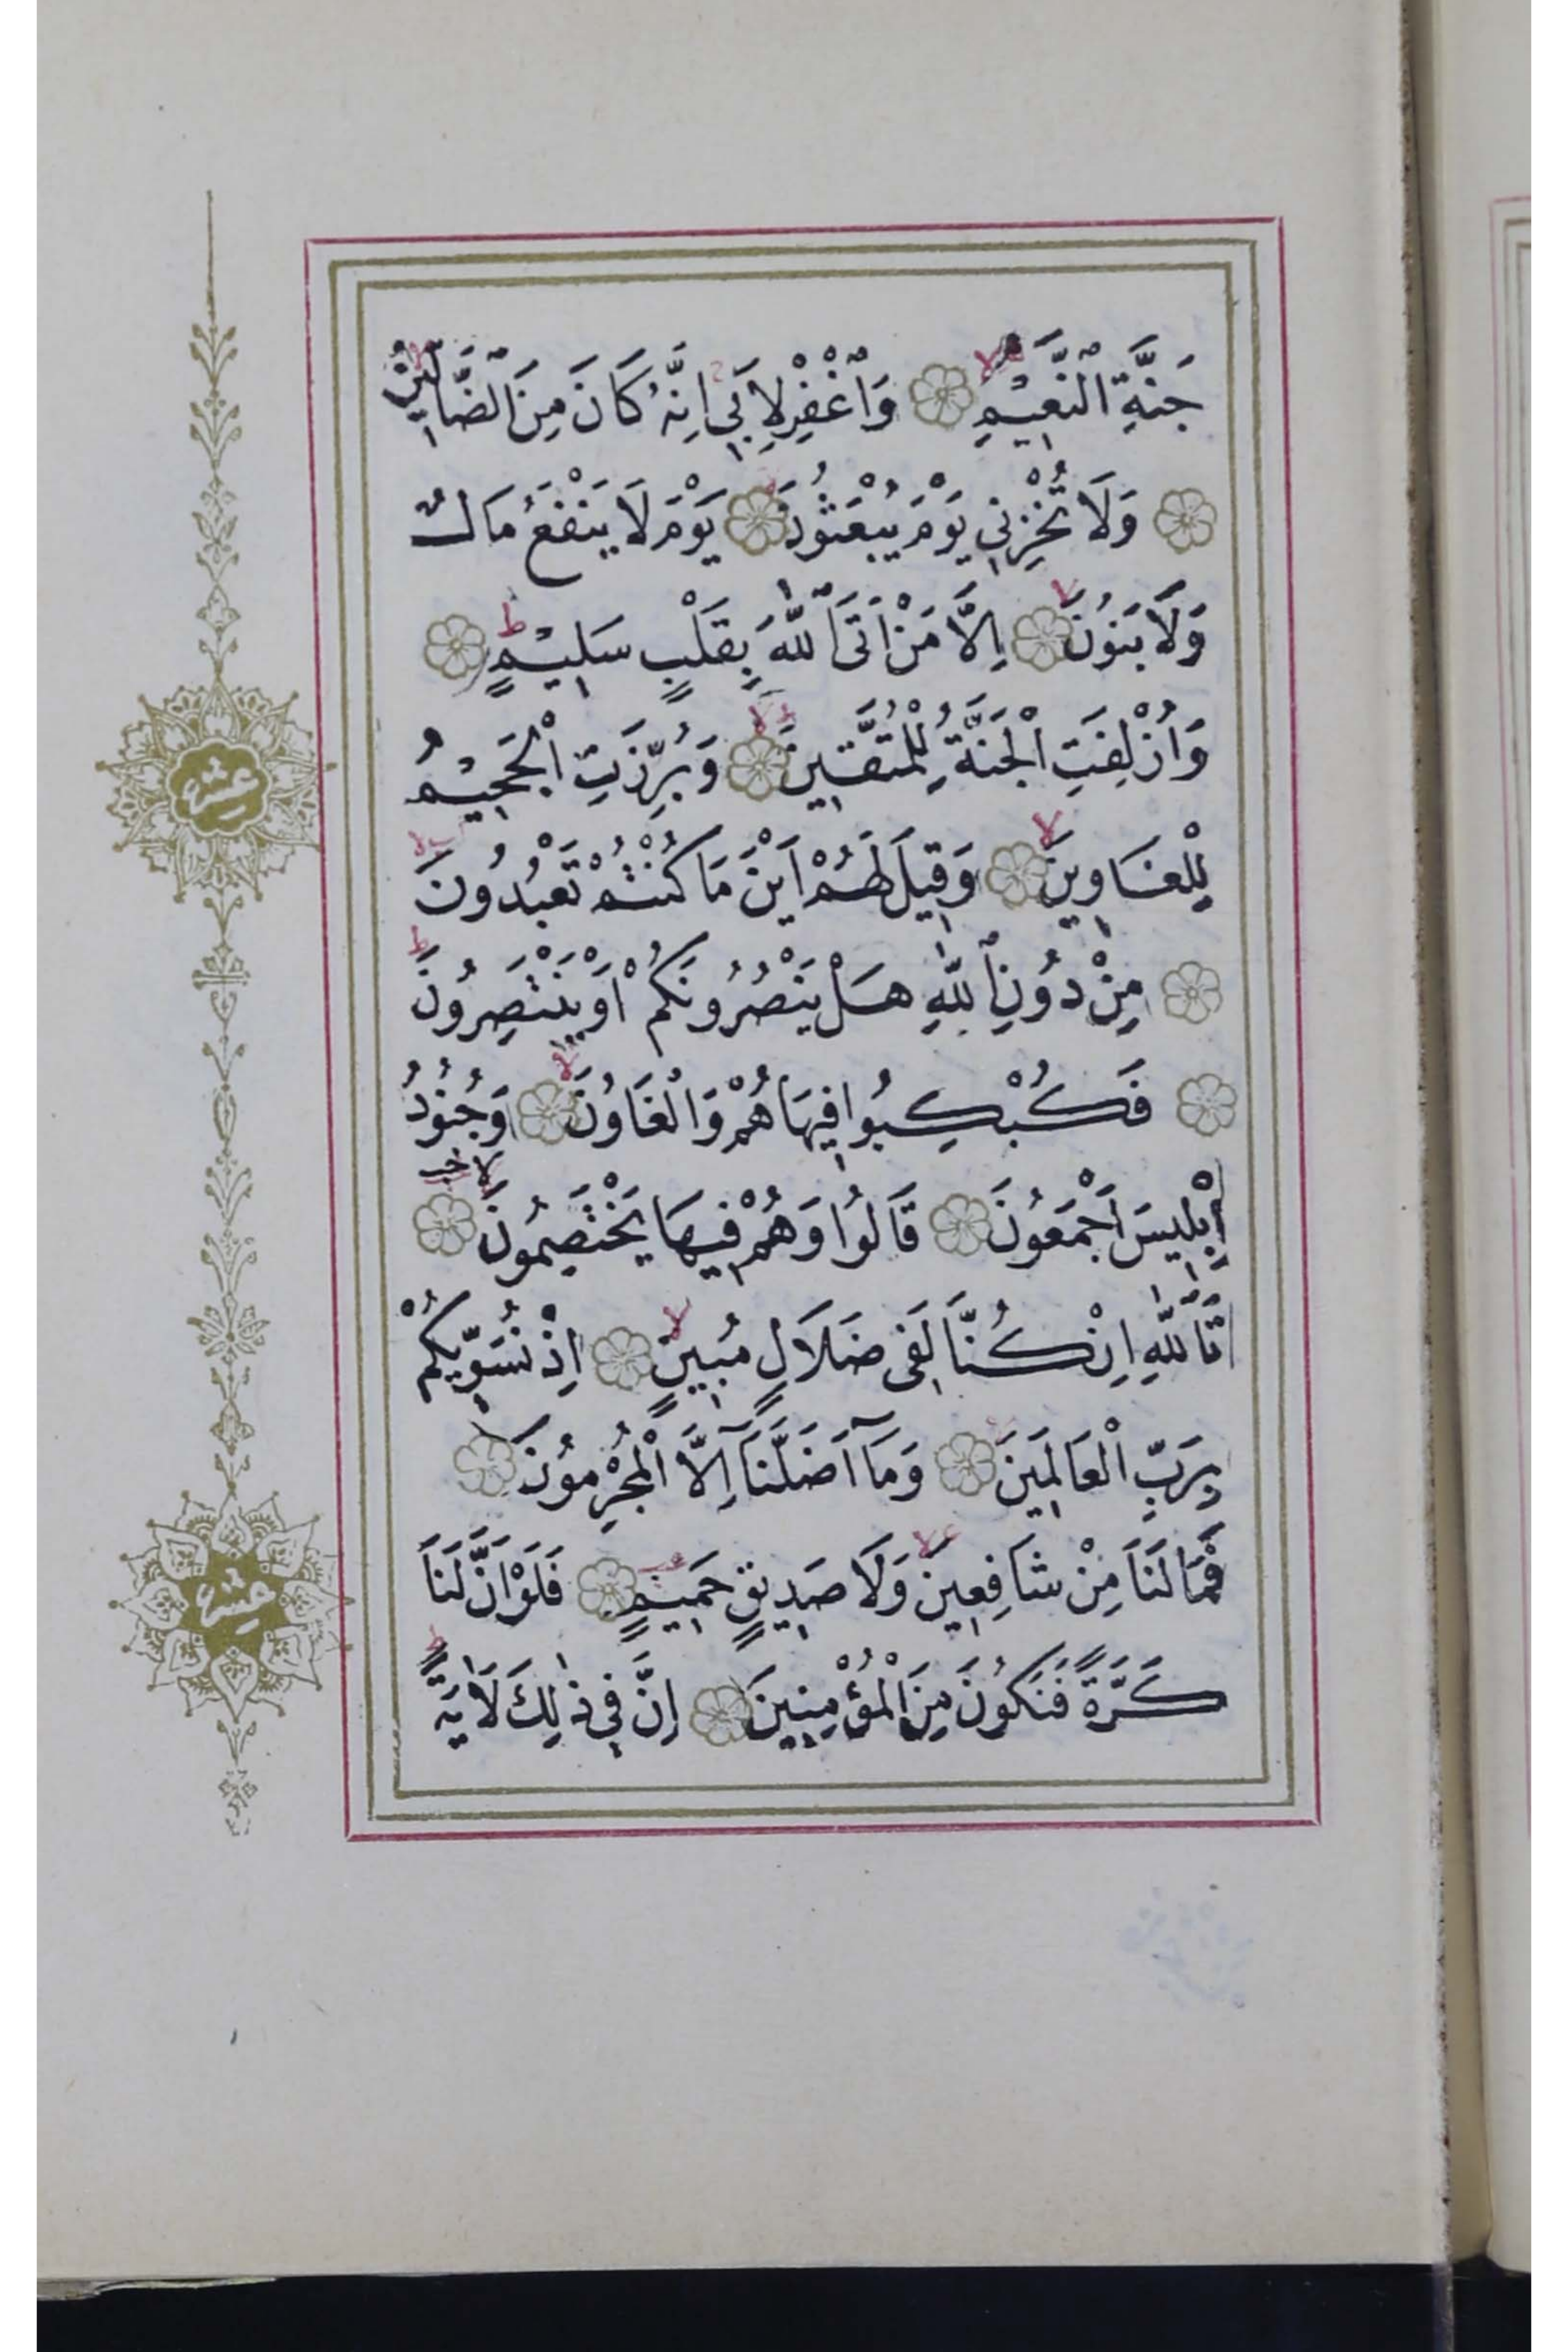 جَنَّةِ النَّعِيمِ وَاغْفِرْ لِاَبِي اِنَّهُ كَانَ مِنَ الضَّالِّينَ
وَلَا تُخْزِنِي يَوْمَ يُبْعَثُونَ يَوْمَ لَا يَنْفَعُ مَالٌ
وَلَا بَنُونَ اِلَّا مَنْ اَتَى اللّٰهَ بِقَلْبٍ سَلِيمٍ
وَاُزْلِفَتِ الْجَنَّةُ لِلْمُتَّقِينَ وَبُرِّزَتِ الْجَحِيمُ
لِلْغَاوِينَ وَقِيلَ لَهُمْ اَيْنَ مَا كُنْتُمْ تَعْبُدُونَ
مِنْ دُونِ اللّٰهِ هَلْ يَنْصُرُونَكُمْ اَوْ يَنْتَصِرُونَ
فَكُبْكِبُوا فِيهَا هُمْ وَالْغَاوُنَ وَجُنُودُ
اِبْلِيسَ اَجْمَعُونَ قَالُوا وَهُمْ فِيهَا يَخْتَصِمُونَ
تَاللّٰهِ اِنْ كُنَّا لَفِى ضَلَالٍ مُبِينٍ اِذْ نُسَوِّيكُمْ
بِرَبِّ الْعَالَمِينَ وَمَآ اَضَلَّنَآ اِلَّا الْمُجْرِمُونَ
فَمَا لَنَا مِنْ شَافِعِينَ وَلَا صَدِيقٍ حَمِيمٍ فَلَوْ اَنَّ لَنَا
كَرَّةً فَنَكُونَ مِنَ الْمُؤْمِنِينَ اِنَّ فِي ذٰلِكَ لَاٰيَةً
عشر
عشر